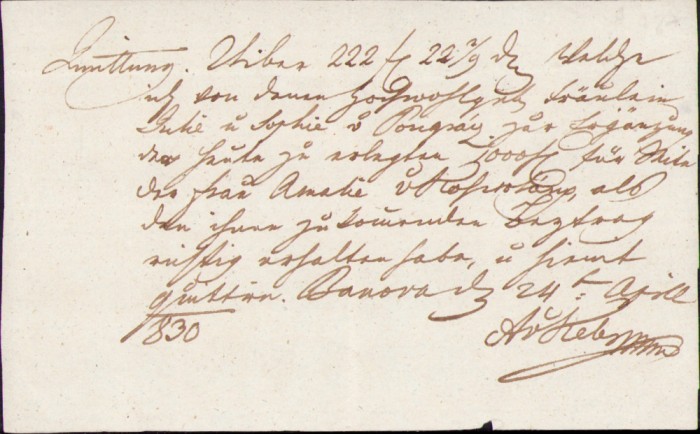 Quittung. Uiber 222 f 22 2/9 d Welche
ich von denen Hochwohlgeb Fräulein
Julie u Sophie v Pongráz zur Ergänzung
der heute zu erlegten 2000 f für
der Frau Amalie v als
den ihnen zukommenden Beytrag
richtig erhalten habe, u hiemit
quittire. Banova d 24t: April
830